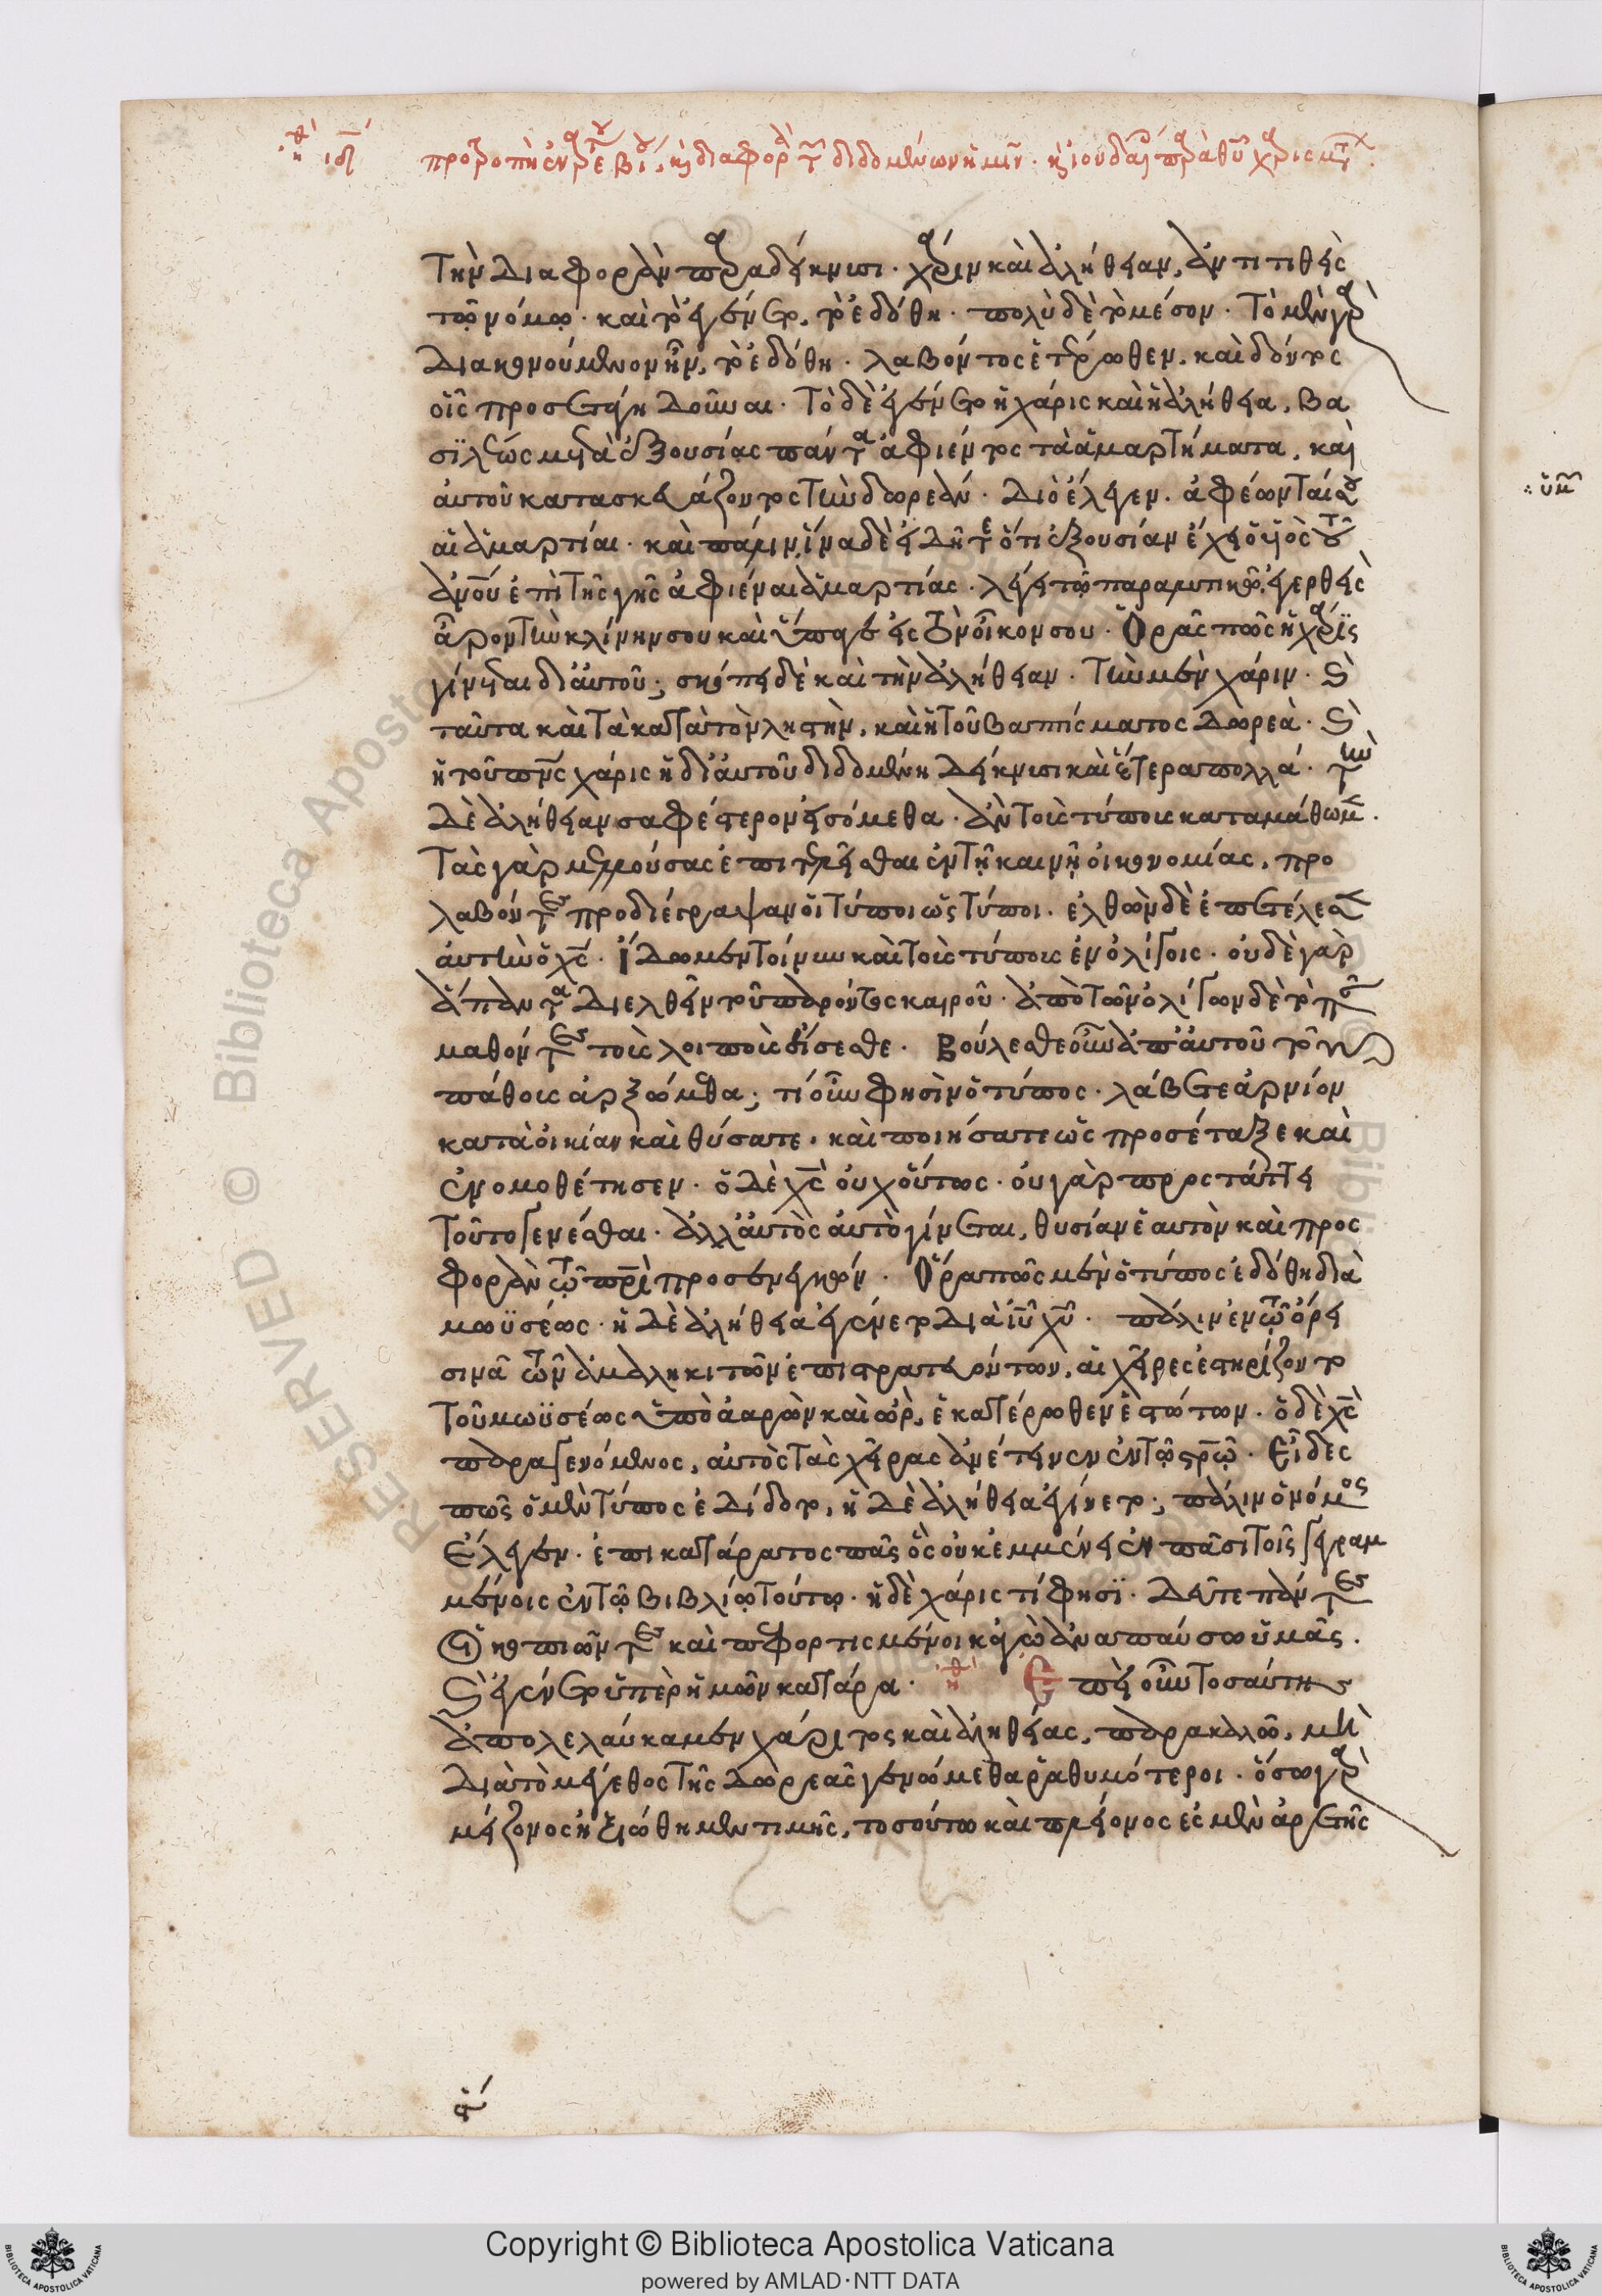 προτροπὴ εἰς ἐνάρετον βίον, κ διαφορὰ τῶν διδομένων ἡμῖν. κ ἰουδαίοις παρὰ θῦ χαρισμάτων.
Τὴν διαφορὰν παραδείκνυσι· χάριν καὶ ἀλήθειαν, ἀντιτιθεὶς
τῷ νόμῳ· καὶ τὸ ἐγένετο, τὸ ἐδόθη· πολὺ δὲ τὸ μέσον· Τὸ μὲν γὰρ
διακονούμενον ἦν, τὸ ἐδόθη· λαβόντος ἑτέρωθεν, καὶ δόντος
οἷς προσετάγη δοῦναι· Τὸ δὲ ἐγένετο ἡ χάρις καὶ ἡ ἀλήθεια, βα
σϊλέως μετὰ ἐξουσίας πάντα ἀφιέντος τὰ ἁμαρτήματα, καὶ
αὐτοῦ κατασκευάζοντος τὴν δωρεάν· Διὸ ἔλεγεν. ἀφέωνταί σου
αἱ ἁμαρτίαι· καὶ πάλιν, ἵνα δὲ εἰδῆτε ὅτι ἐξουσίαν ἔχει ὁ υἱὸς τοῦ
ἀνοῦ ἐπὶ τῆς γῆς ἀφιέναι ἁμαρτίας· λέγει τῷ παραλυτικῷ, ἐγερθεὶς
ἆρον τὴν κλίνην σου καὶ ὕπαγε εἰς τὸν οἶκόν σου· Ὁρᾷς πῶς ἡ χάρις
γίνεται δι' αὐτοῦ; σκόπει δὲ καὶ τὴν ἀλήθειαν· Τὴν μὲν χάριν· κ
ταῦτα καὶ τὰ κατὰ τὸν ληστὴν, καὶ ἡ τοῦ βαπτίσματος δωρεὰ· κ
ἡ τοῦ πνς χάρις ἡ δι' αὐτοῦ διδομένη δείκνυσι καὶ ἕτερα πολλά· τὴν
δὲ ἀλήθειαν σαφέστερον εἰσόμεθα· ἂν τοὺς τύπους καταμάθωμεν.
Τὰς γὰρ μελλούσας ἐπιτελεῖσθαι ἐν τῇ καινῇ οἰκονομίας, προ
λαβόντες προδιέγραψαν οἱ τύποι ὡς τύποι· ἐλθὼν δὲ ἐπετέλεσεν
αὐτὴν ὁ χς· ἴδωμεν τοίνυν καὶ τοὺς τύπους ἐν ὀλίγοις· οὐδὲ γὰρ
ἅπαντα διελθεῖν τοῦ παρόντος καιροῦ· ἀπὸ τῶν ὀλίγων δὲ τὸ πᾶν
μαθόντες τοὺς λοιποὺς εἴσεσθε· Βούλεσθε οὖν ἀπ' αὐτοῦ τοῦ
πάθους ἀρξώμεθα; τί οὖν φησὶν ὁ τύπος· λάβετε ἀρνίον
κατὰ οἰκίαν καὶ θύσατε· καὶ ποιήσατε ὡς προσέταξε καὶ
ἐνομοθέτησεν· ὁ δὲ χς οὐχ οὕτως· οὐ γὰρ προστάττει
τοῦτο γενέσθαι· ἀλλ' αὐτὸς αὐτὸ γίνεται, θυσίαν ἑαυτὸν καὶ προς
φορὰν τῷ πρὶ προσενεγκών· Ὅρα πῶς μὲν ὁ τύπος ἐδόθη διὰ
μωϋσέως· ἡ δὲ ἀλήθεια ἐγένετο διὰ ιῦ χῦ· πάλιν ἐν τῷ ὄρει
σινᾶ τῶν ἀμαληκιτῶν ἐπιστρατευόντων, αἱ χεῖρες ἐστηρίζοντο
τοῦ μωϋσέως ὑπὸ ἀαρὼν καὶ ὢρ, ἑκατέρωθεν ἑστώτων· ὁ δὲ χς
παραγενόμενος, αὐτὸς τὰς χεῖρας ἀνέτεινεν ἐν τῷ σρῷ· Εἶδες
πῶς ὁ μὲν τύπος ἐδίδοτο, ἡ δὲ ἀλήθεια ἐγίνετο; πάλιν ὁ νόμος
ἔλεγεν· ἐπικατάρατος πᾶς ὃς οὐκ ἐμμένει ἐν πᾶσι τοῖς γεγραμ
μένοις ἐν τῷ βιβλίῳ τούτῳ· ἡ δὲ χάρις τί φησϊ· Δεῦτε πάντες
οἱ κοπιῶντες καὶ πεφορτισμένοι κἀγὼ ἀναπαύσω ὑμᾶς.
κ ἐγένετο ὑπὲρ ἡμῶν κατάρα· Ἐπεὶ οὖν τοσαύτης
ἀπολελαύκαμεν χάριτος καὶ ἀληθείας, παρακαλῶ, μὴ
διὰ τὸ μέγεθος τῆς δωρεᾶς γενώμεθα ῥαθυμότεροι· ὅσω γὰρ
μείζονος ἠξιώθημεν τιμῆς, τοσούτω καὶ πλείονος ἐσμὲν ἀρετῆς